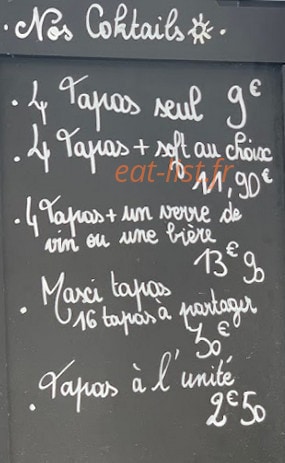 • Nos Coktails •
• 4 Tapas seul 9€
• 4 Tapas + soft au choix
eat-list.fr
11,90€
• 4 Tapas + un verre de
vin ou une bière
13€90
• Maxi tapas
16 tapas à partager
30€
• Tapas à l'unité
2€50